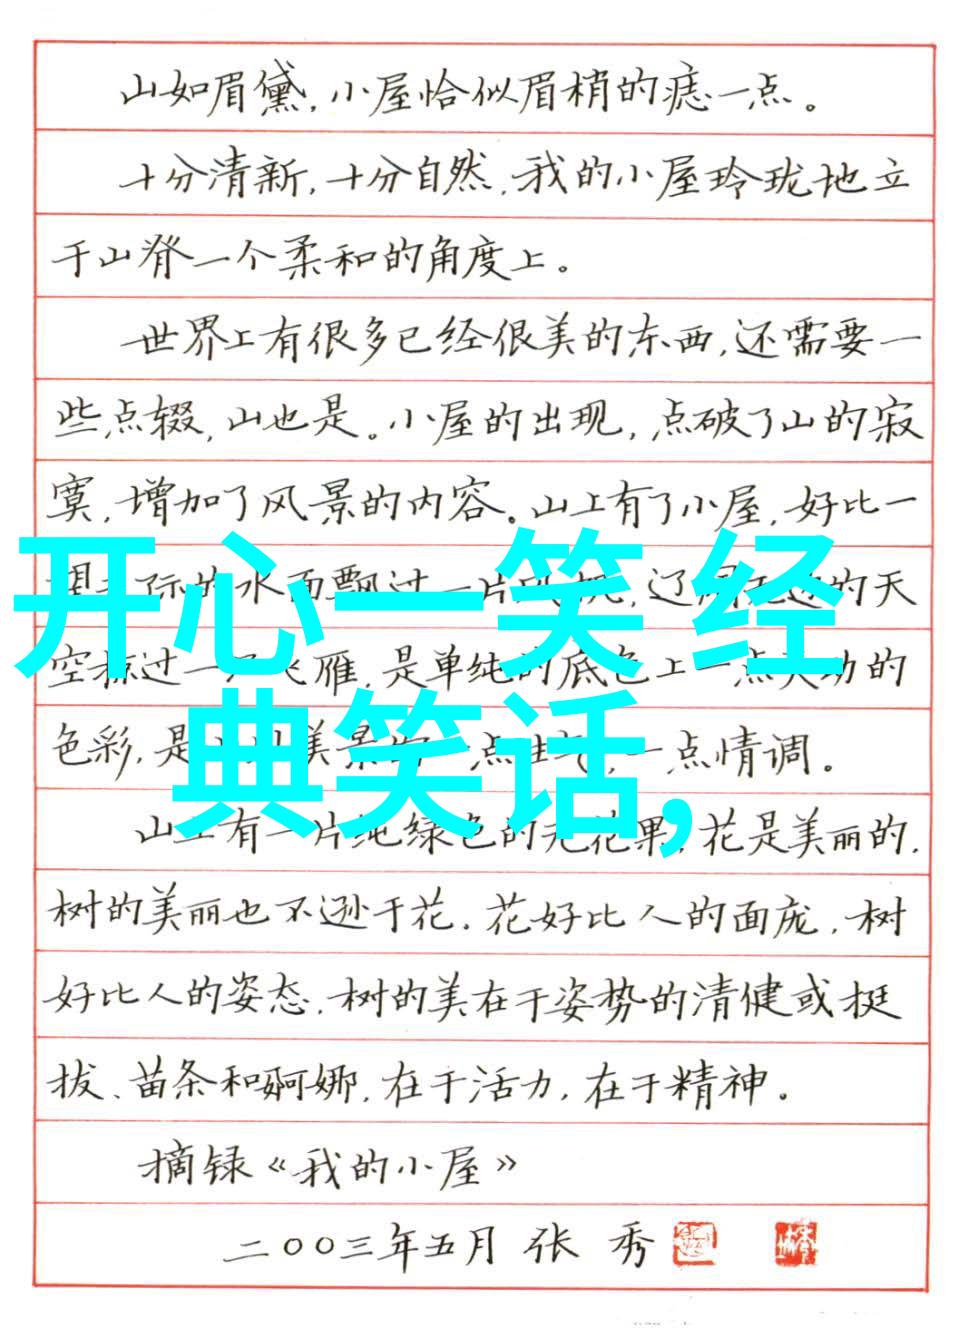 山如眉黛,小屋恰似眉梢的痣一点。
十分清新,十分自然,我的小屋玲珑地立
于山脊一个柔和的角度上。
世界上有很多已经很美的东西,还需要一
些点缀,山也是。小屋的出现,点破了山的寂
寞,增加了风景的内容。山上有了小屋,好比一
开心一笑 经
的水面飘过一片 ,辽 的天
空掠过一 雁,是单纯的底色上一点 的
典笑话,
色彩,是 美景 点 一点情调。
山上有一片纯绿色的无花果,花是美丽的,
树的美丽也不逊于花。花好比人的面庞,树
好比人的姿态。树的美在于姿势的清健或挺
拔、苗条和婀娜,在于活力,在于精神。
摘录《我的小屋》
二〇〇三年五月 张 秀